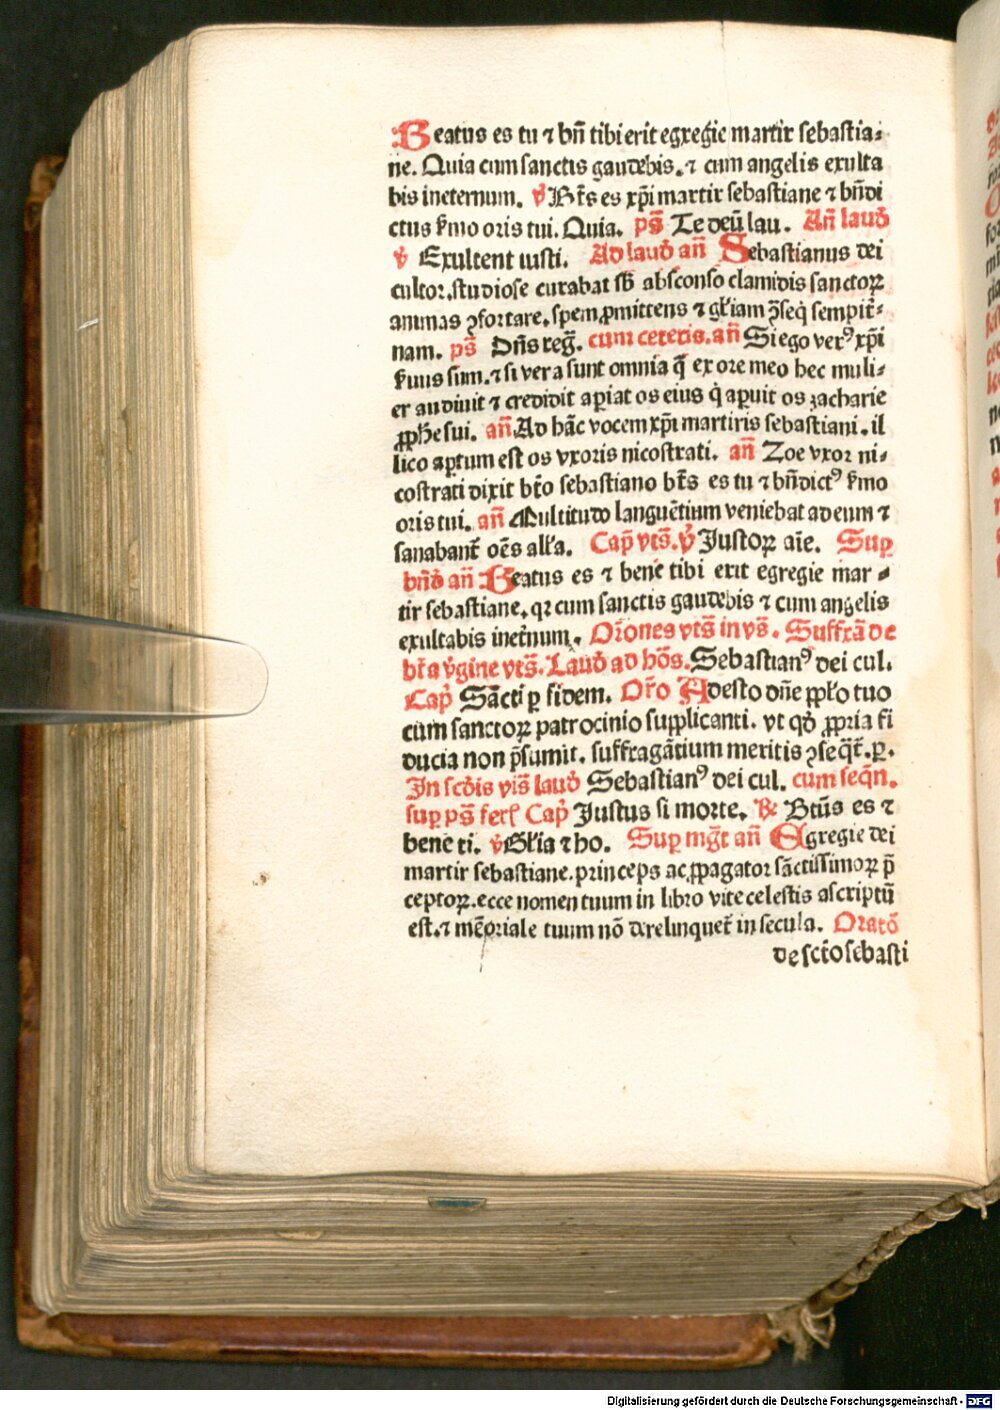 Beatus es tu ⁊ bn̄ tibi erit egregie martir sebastia⸗
ne. Quia cum sanctis gaudebis. ⁊ cum angelis exulta
bis ineternum. ℣ Bt̄s es xp̄i martir sebastiane ⁊ bn̄di
ctus s̄mo oris tui. Quia. ps̄ Te deū lau. An̄ laud̄
℣ Exultent iusti. Ad laud̄ an̄ Sebastianus dei
cultor. studiose curabat sb̄ absconso clamidis sanctoꝝ
animas ꝯfortare. spem ꝓmittens ⁊ gl̄iam ꝯseq̄ sempit̄⸗
nam. ps̄ Dn̄s reḡ. cum ceteris. an̄ Si ego verꝰ xp̄i
s̄uus sum. ⁊ si vera sunt omnia q̄ ex ore meo hec muli⸗
er audiuit ⁊ credidit aꝑiat os eius q̇ aꝑuit os zacharie
ꝓph̄e sui. an̄ Ad hāc vocem xp̄i martiris sebastiani. il
lico aꝑtum est os vxoris nicostrati. an̄ Zoe vxor ni⸗
costrati dixit bt̄o sebastiano bt̄s es tu ⁊ bn̄dictꝰ s̄mo
oris tui. an̄ Multitudo languētium veniebat ad eum ⁊
sanabant̄ oēs all̄a. Cap̄ vts̄. ℣ Justoꝝ aīe. Suꝑ
bn̄d̄ an̄ Beatus es ⁊ bene tibi erit egregie mar⸗
tir sebastiane. qꝛ cum sanctis gaudebis ⁊ cum angelis
exultabis inet̄num. Or̄ones vts̄ in vs̄. Suffrā de
bt̄a v̄gine vts̄. Laud̄ ad hōs. Sebastianꝰ dei cul.
Cap̄ Sācti ꝑ fidem. Or̄o Adesto dn̄e ꝓpl̄o tuo
cum sanctoꝝ patrocinio supplicanti. vt qd̄ ꝓpria fi
ducia non p̄sumit. suffragātium meritis ꝯseq̄t̄. ꝑ.
In scd̄is vis̄ laud̄ Sebastianꝰ dei cul. cum seqn̄.
suꝑ ps̄ ferł Cap̄ Justus si morte. ℟ Btūs es ⁊
bene ti. ℣ Gl̄ia ⁊ ho. Suꝑ mḡt an̄ Egregie dei
martir sebastiane. princeps ac ꝓpagator sāctissimoꝝ p̄
ceptoꝝ. ecce nomen tuum in libro vite celestis ascriptū
est. ⁊ mēoriale tuum nō derelinquet̄ in secula. Oratō
de sct̄o sebasti
Digitalisierung gefördert durch die Deutsche Forschungsgemeinschaft - DFG